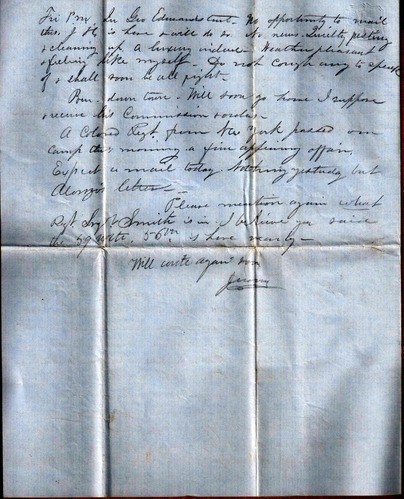 Fri P.M. In Geo Edmunds tent. No opportunity to mail
this. J H is here & will do so. No news. Quills, resting
& cleaning up. A luxury indeed. Weather pleasant
& feeling like myself. Do not cough any to speak
of & shall soon be all right.
down town. Will soon go home I suppose
receive his Commission
A Colored Regt. from New York passed our
camp this morning a fine appearing affair.
Expect a mail today. Nothing yesterday but
Alonzo's letter
Please mention again what
Regt Smith is in. I believe you said
the 59 56th is here nearly
Will write again soon